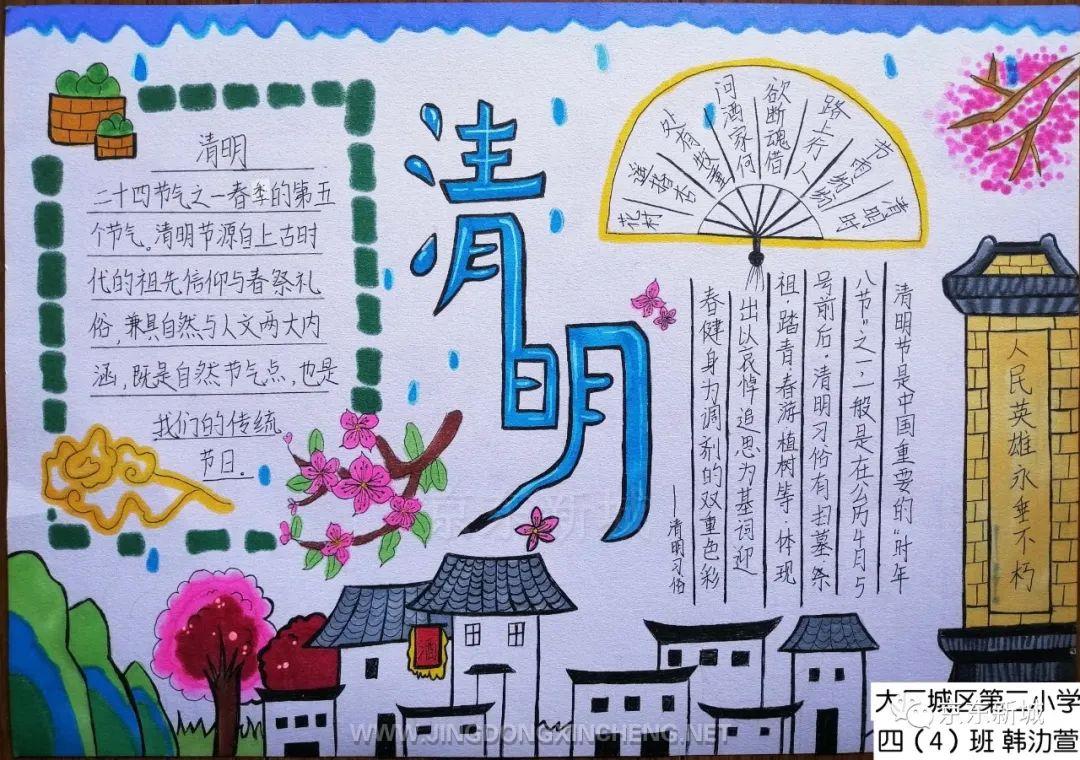 清明
二十四节气之一春季的第五
个节气。清明节源自上古时
代的祖先信仰与春祭礼
俗，兼具自然与人文两大内
涵，既是自然节气点，也是
我们的传统
节日。
清明
清明时
节雨纷纷
路上行人
欲断魂借
问酒家何
处有牧童
杏
花村
清明节是中国重要的“时年
八节”之一,一般是在公历4月5
号前后。清明习俗有扫墓祭
祖·踏青春游·植树等·体现
出以哀悼追思为基词迎
春健身为调剂的双重色彩
——清明习俗
人民英雄永垂不朽
酒
京东新城
WWW.JINGDONGXINCHENG.NET
城区第 小学
京东新城
四（4）班 韩沏萱